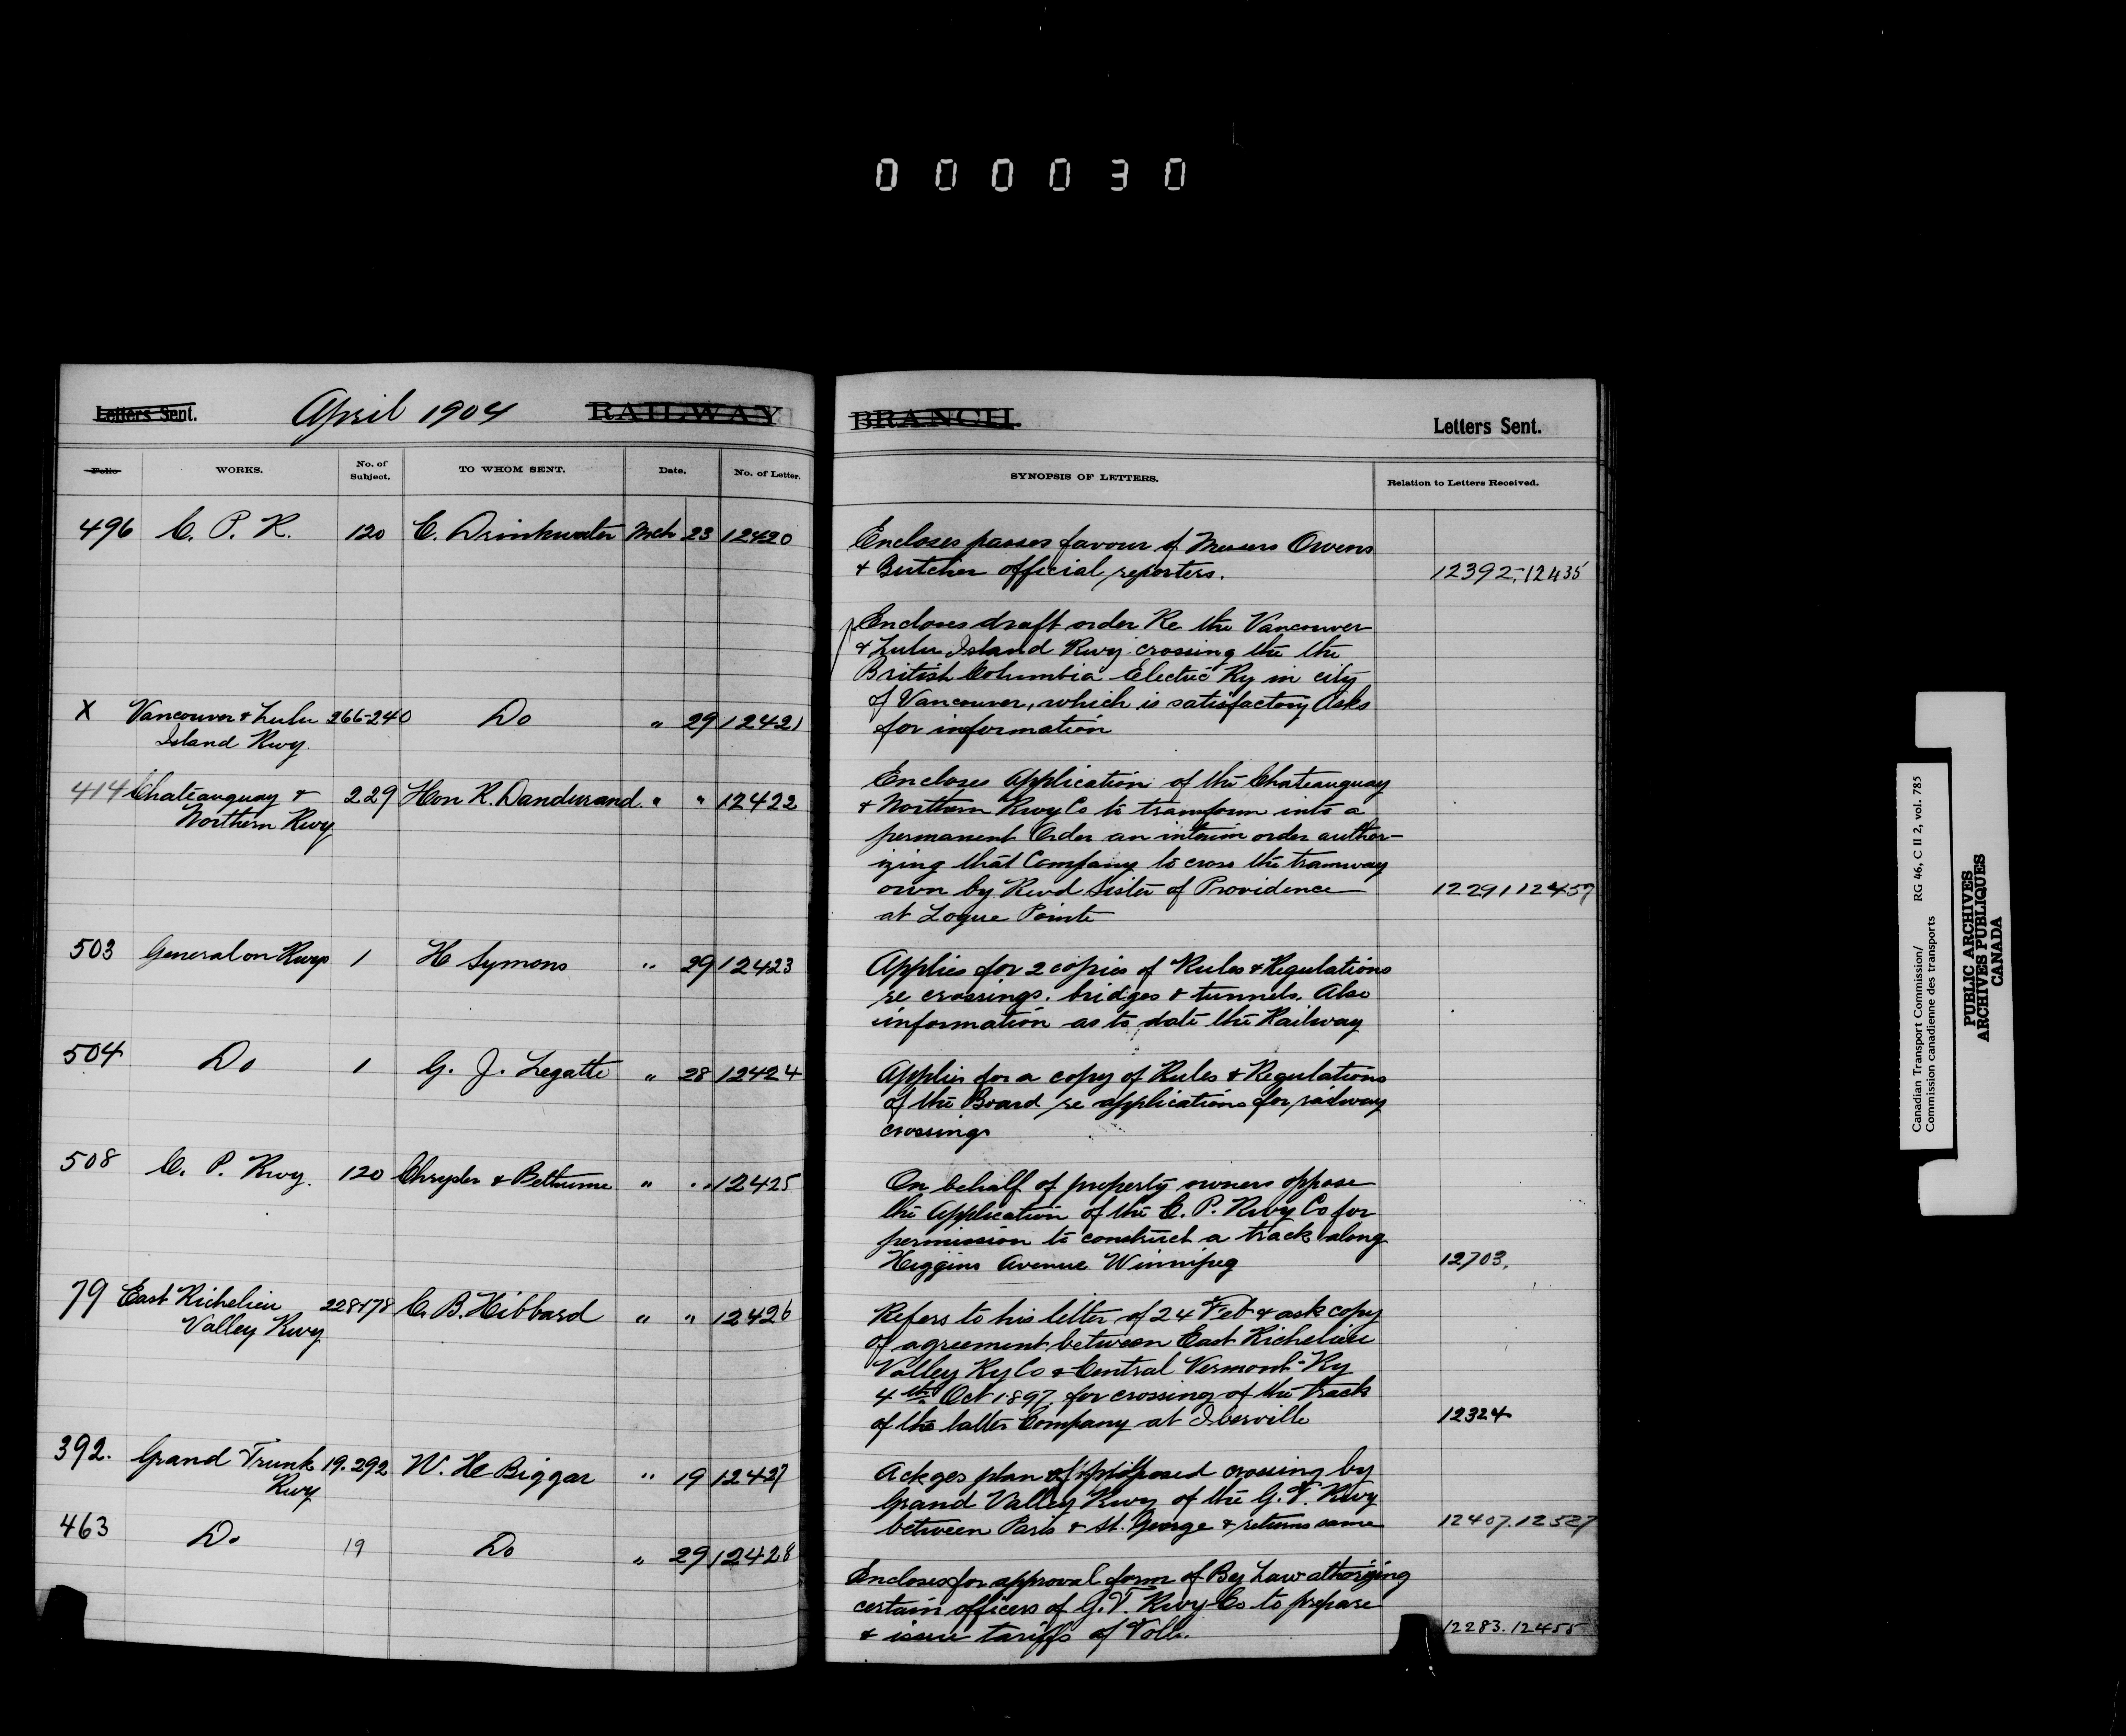 000030
Letters Sent. April 1904 RAILWAY BRANCH. Letters Sent.
Folio WORKS. No. of Subject. TO WHOM SENT. Date. No. of Letter. SYNOPSIS OF LETTERS. Relation to Letters Received.
496 C. P. R. 120 C. Drinkwater Mch 23 12420
Encloses passes favour of Messrs Owens
& Butcher official reporters. 12392,-12435
X Vancouver & Lulu 266-240 Do " 29 12421
Island Rwy.
Encloses draft order Re the Vancouver
& Lulu Island Rwy crossing the the
British Columbia Electric Ry in city
of Vancouver, which is satisfactory Asks
for information
414 Chateauguay & 229 Hon R. Dandurand. " " 12422
Northern Rwy
Encloses Application of the Chateauguay
& Northern Rwy Co to transform into a
permanent Order an interim order author-
izing that Company to cross the tramway
own by Revd Sister of Providence 12291 12457
at Logue Pointe
503 General on Rwys 1 H Symons " 29 12423
Applies for 2 copies of Rules & Regulations
re crossings. bridges & tunnels. Also
information as to date the Railway
504 Do 1 G. J. Legatte " 28 12424
Applies for a copy of Rules & Regulations
of the Board re applications for railway
crossings
508 C. P. Rwy. 120 Chrysler & Bethume " " 12425
On behalf of property owners oppose
the Application of the C. P. Rwy Co for
permission to construct a track along
Higgins Avenue Winnipeg 12703.
79 East Richelieu 228+78 C. B. Hibbard " " 12426
Valley Rwy
Refers to his letter of 24 Feb & ask copy
of agreement between East Richelieu
Valley Ry Co & Central Vermont Ry
4th Oct 1897, for crossing of the track
of the latter Company at Iberville 12324
392. Grand Trunk 19.292 W. H Biggar " 19 12427
Rwy
Ackges plan of proposed crossing by
Grand Valley Rwy of the G. T. Rwy
between Paris & St. George & returns same 12407.12527
463 Do 19 Do " 29 12428
Encloses for approval form of Bey Law athorizing
certain officers of G. T. Rwy Co to prepare
& issue tariffs of Tolls. 12283.12455
Canadian Transport Commission/ RG 46, C II 2, vol. 785
Commission canadienne des transports
PUBLIC ARCHIVES
ARCHIVES PUBLIQUES
CANADA